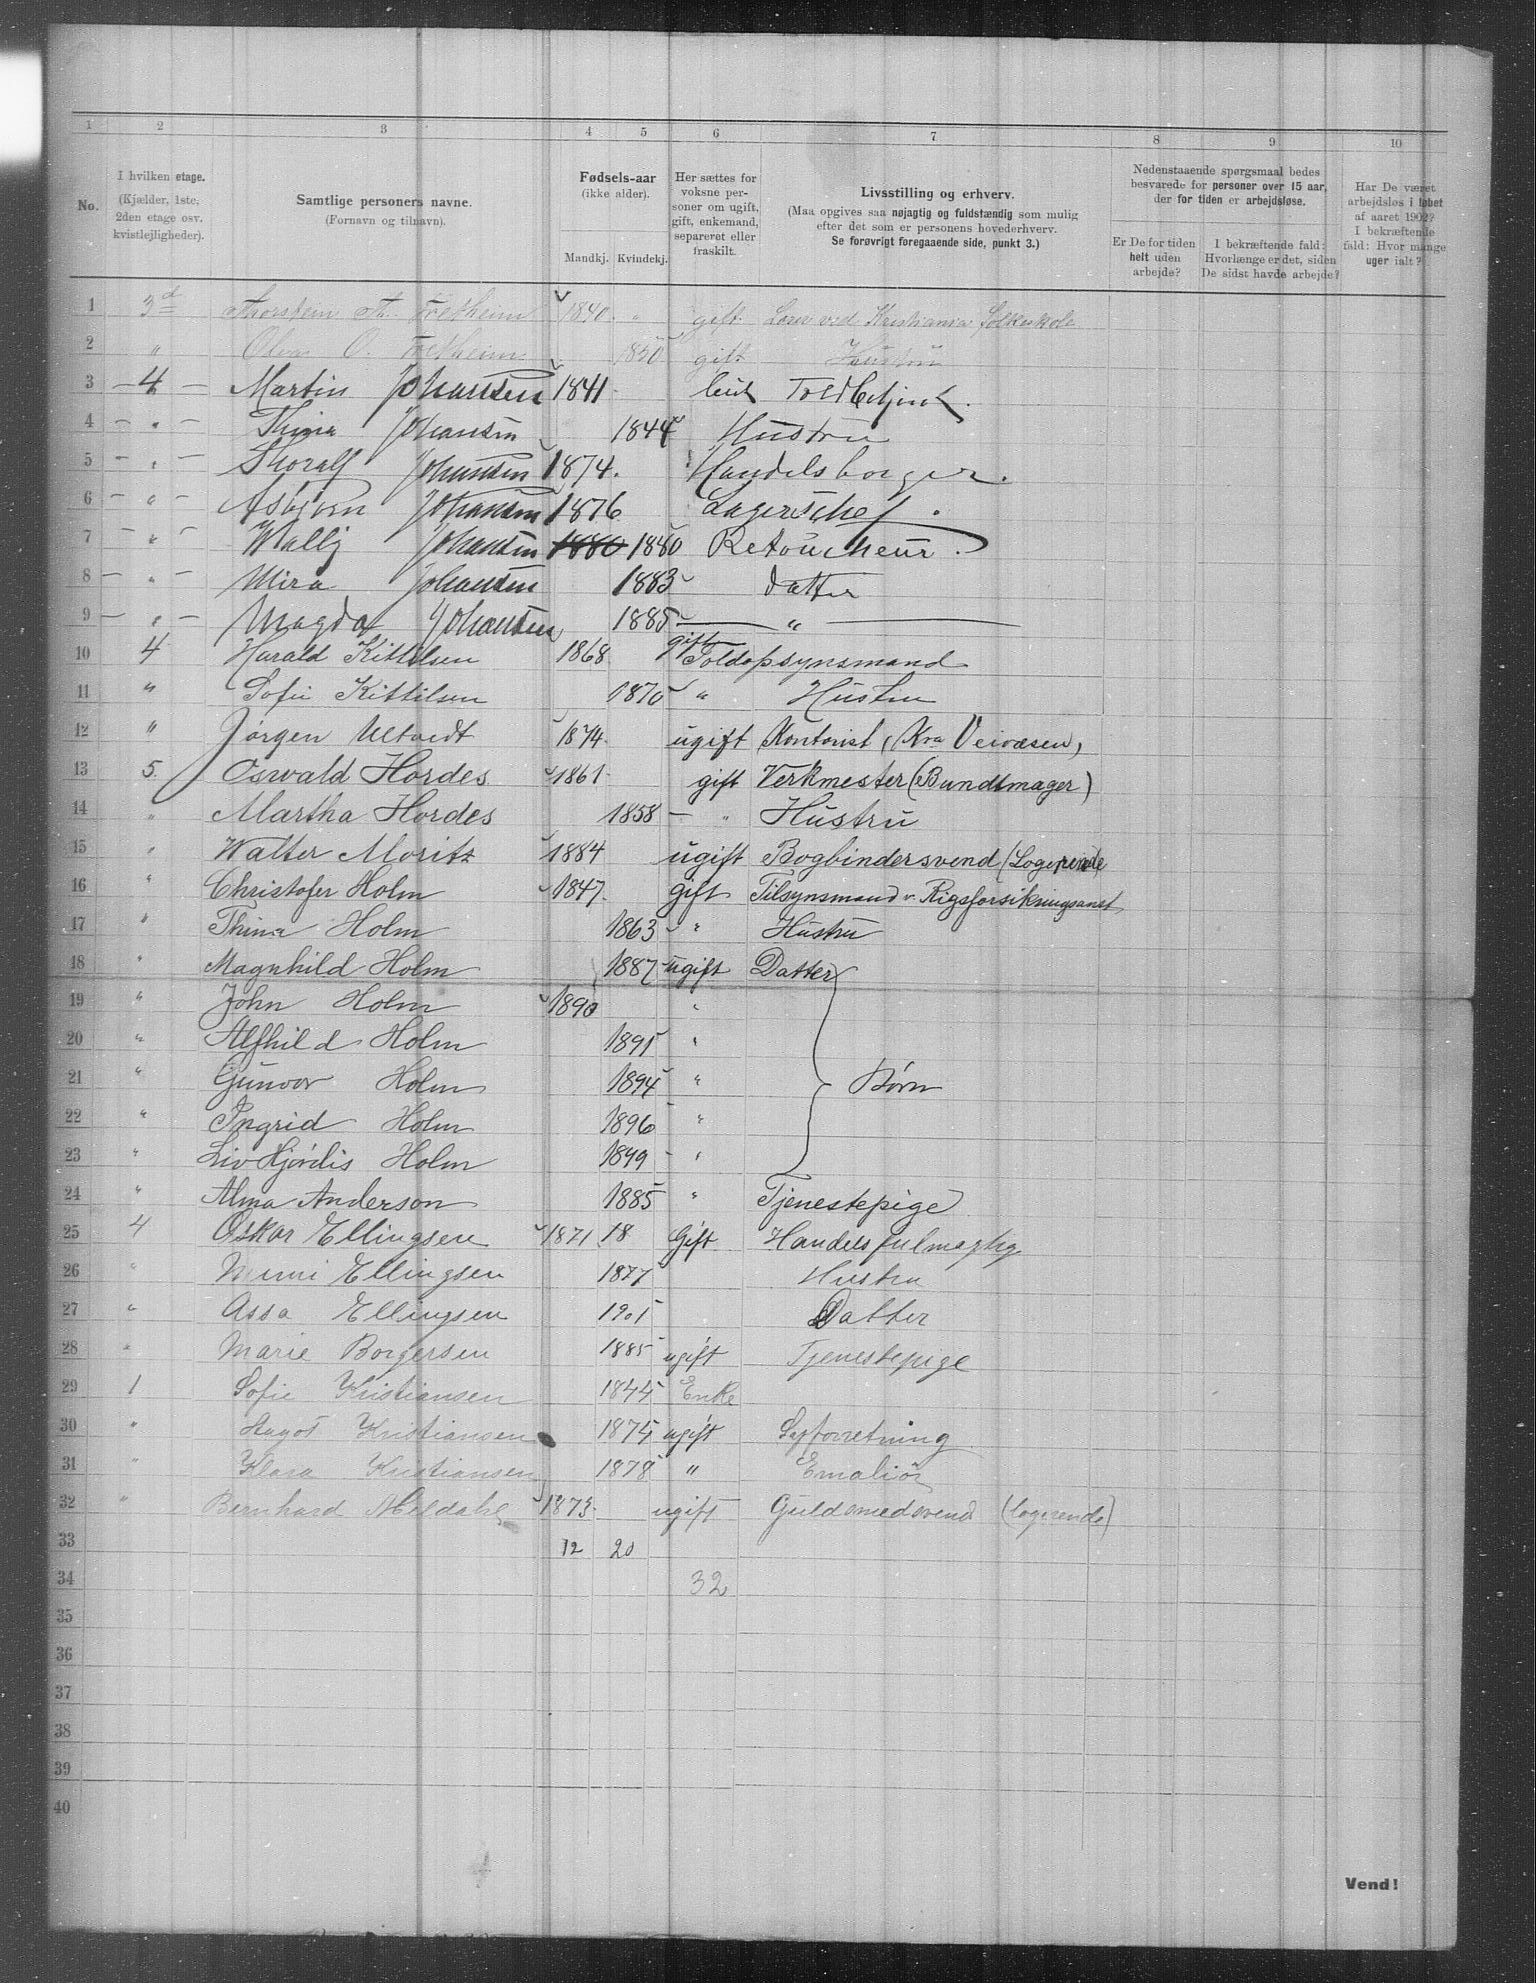 1 2 3 4 5 6 7 8 9 10
No. I hvilken etage. (Kjælder, 1ste, 2den etage osv. kvistlejligheder). Samtlige personers navne. (Fornavn og tilnavn). Fødsels-aar (ikke alder). Mandkj. Kvindekj. Her sættes for voksne personer om ugift, gift, enkemand, separeret eller fraskilt. Livsstilling og erhverv. (Maa opgives saa nøjagtig og fuldstændig som mulig efter det som er personens hovederhverv. Se forøvrigt foregaaende side, punkt 3.) Nedenstaaende spørgsmaal bedes besvarede for personer over 15 aar, der for tiden er arbejdsløse. Er De for tiden helt uden arbejde? I bekræftende fald: Hvorlænge er det, siden De sidst havde arbejde? Har De været arbejdsløs i løbet af aaret 1902? I bekræftende fald: Hvor mange uger ialt?
1 3d Thorstein Th. Fretheim 1840. " gift Lærer ved Kristiania folkeskole
2 " O. Fretheim 1850 gift Hustru
3 – 4 – Martin Johansen 1841 Toldbetjent.
4 – " – Thina Johansen 1844 Hustru
5 – " – Thoralf Johansen 1874. Handelsborger.
6 – " – Asbjørn Johansen 1876 Lagerschef.
7 " Wally Johansen 1880 1880 Retoucheur.
8 – " – Mira Johansen 1883 datter
9 – " – Magda Johansen 1885 — " —
10 4 Harald Kittilsen 1868 gift Toldopsynsmand
11 " Sofie Kittilsen 1870 " Hustru
12 " Jørgen Ultvedt 1874. ugift Kontorist, (Kra Veivæsen,
13 5. Oswald Hordes 1861. gift Verkmester (Bundtmager)
14 " Martha Hordes 1858 — " Hustru
15 " Walter Moritz 1884 ugift Bogbindersvend (Logerende
16 " Christofer Holm 1847. gift Tilsynsmand v. Rigsforsikringsanst.
17 " Thina Holm 1863 " Hustru
18 " Magnhild Holm 1887 ugift Datter
19 " John Holm 1890 "
20 " Alfhild Holm 1891 "
21 " Gunvor Holm 1894 " Børn
22 " Ingrid Holm 1896 "
23 " Liv Hjørdis Holm 1899 "
24 " Alma Anderson 1885 " Tjenestepige
25 4 Oskar Ellingsen 1871 18 Gift Handelsfulmægtig
26 " Mimi Ellingsen 1877 Hustru
27 " Assa Ellingsen 1901 Datter
28 " Marie Borgersen 1885 ugift Tjenestepige
29 1 Sofie Kristiansen 1845 Enke
30 " Kristiansen 1875 ugift Syforretning
31 " Klara Kristiansen 1878 " Emaliør
32 " Bernhard Meldahl 1873. ugift Guldsmedsvend (logerende)
33 12 20
34 32
35
36
37
38
39
40
Vend!